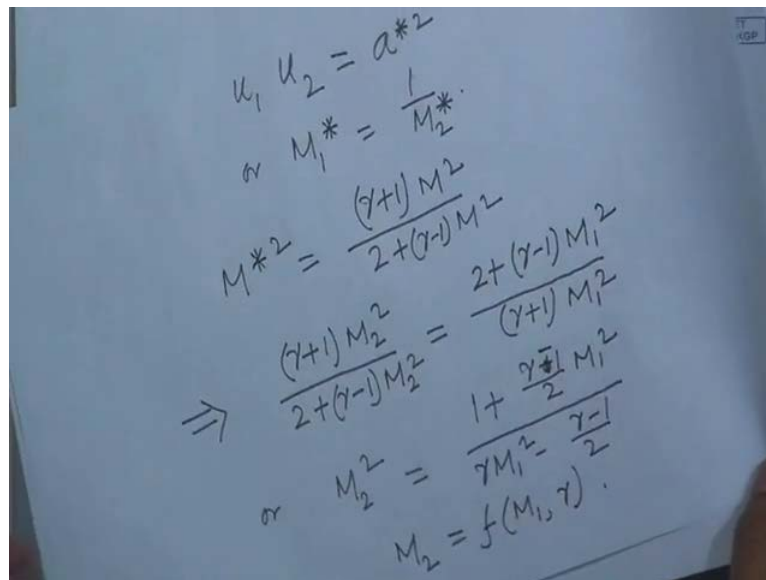 u₁ u₂ = a*²
or M₁* = 1/M₂*.
M*² = (γ+1) M² / 2+(γ-1) M²
⇒ (γ+1) M₂² / 2+(γ-1) M₂² = 2+(γ-1) M₁² / (γ+1) M₁²
or M₂² = 1 + γ-1/2 M₁² / γM₁² - γ-1/2
M₂ = f(M₁, γ).